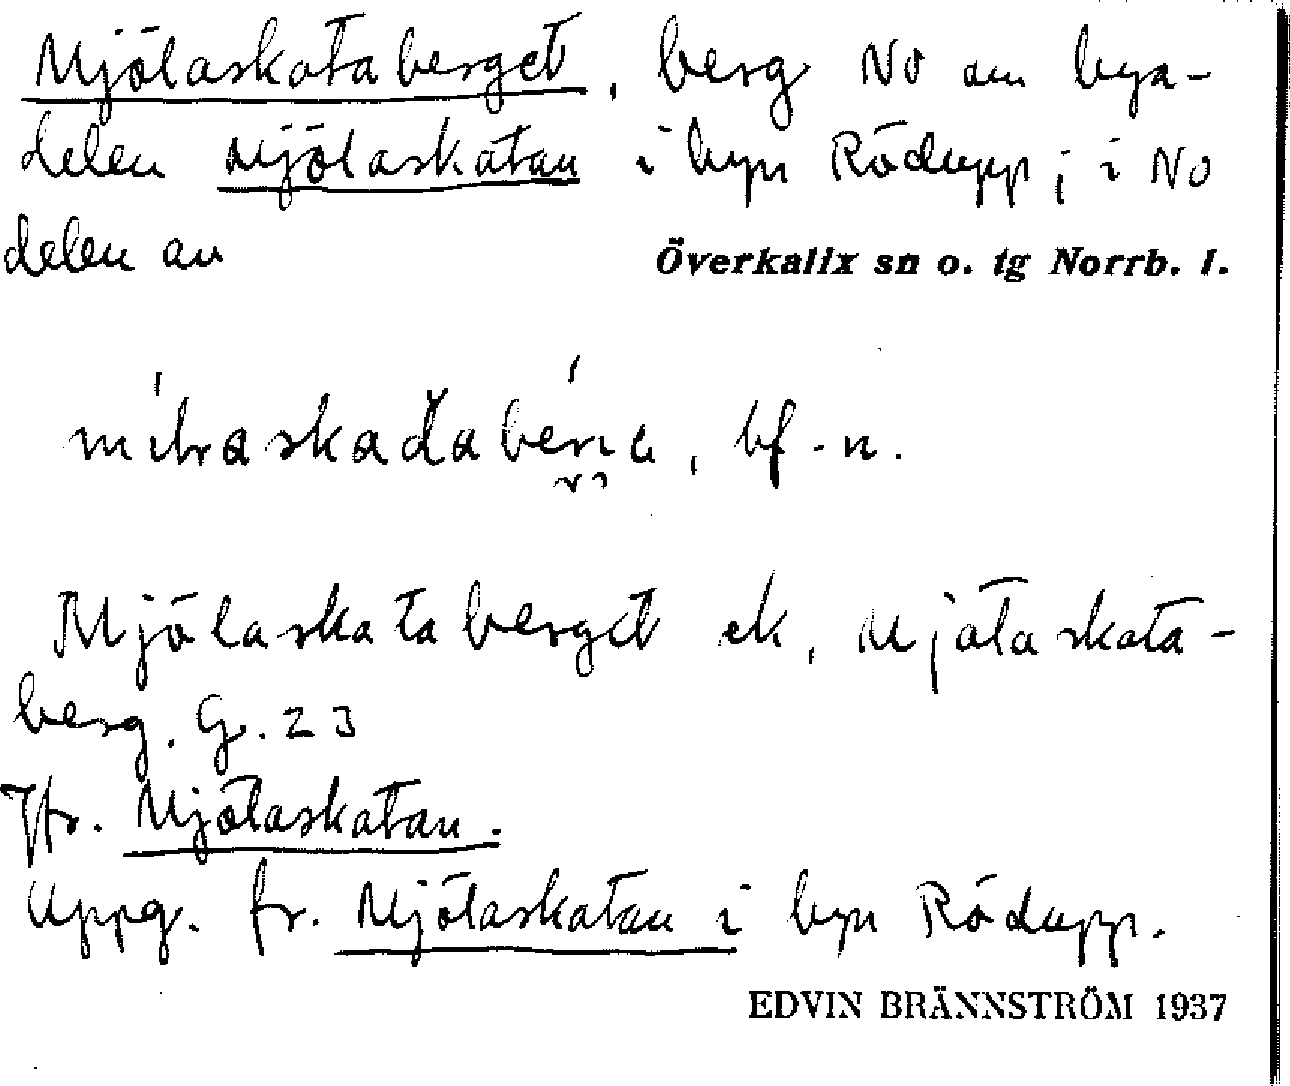 Mjölaskataberget, berg NO om bya-
delen Mjölaskatan i byn Rödupp; i NO
delen av Överkalix sn o. tg Norrb. l.
bf -n.
Mjölaskataberget ek, Mjölaskata-
berg. G. 23
Jfr. Mjölaskatan.
Uppg. fr. Mjölaskatan i byn Rödupp.
EDVIN BRÄNNSTRÖM 1937